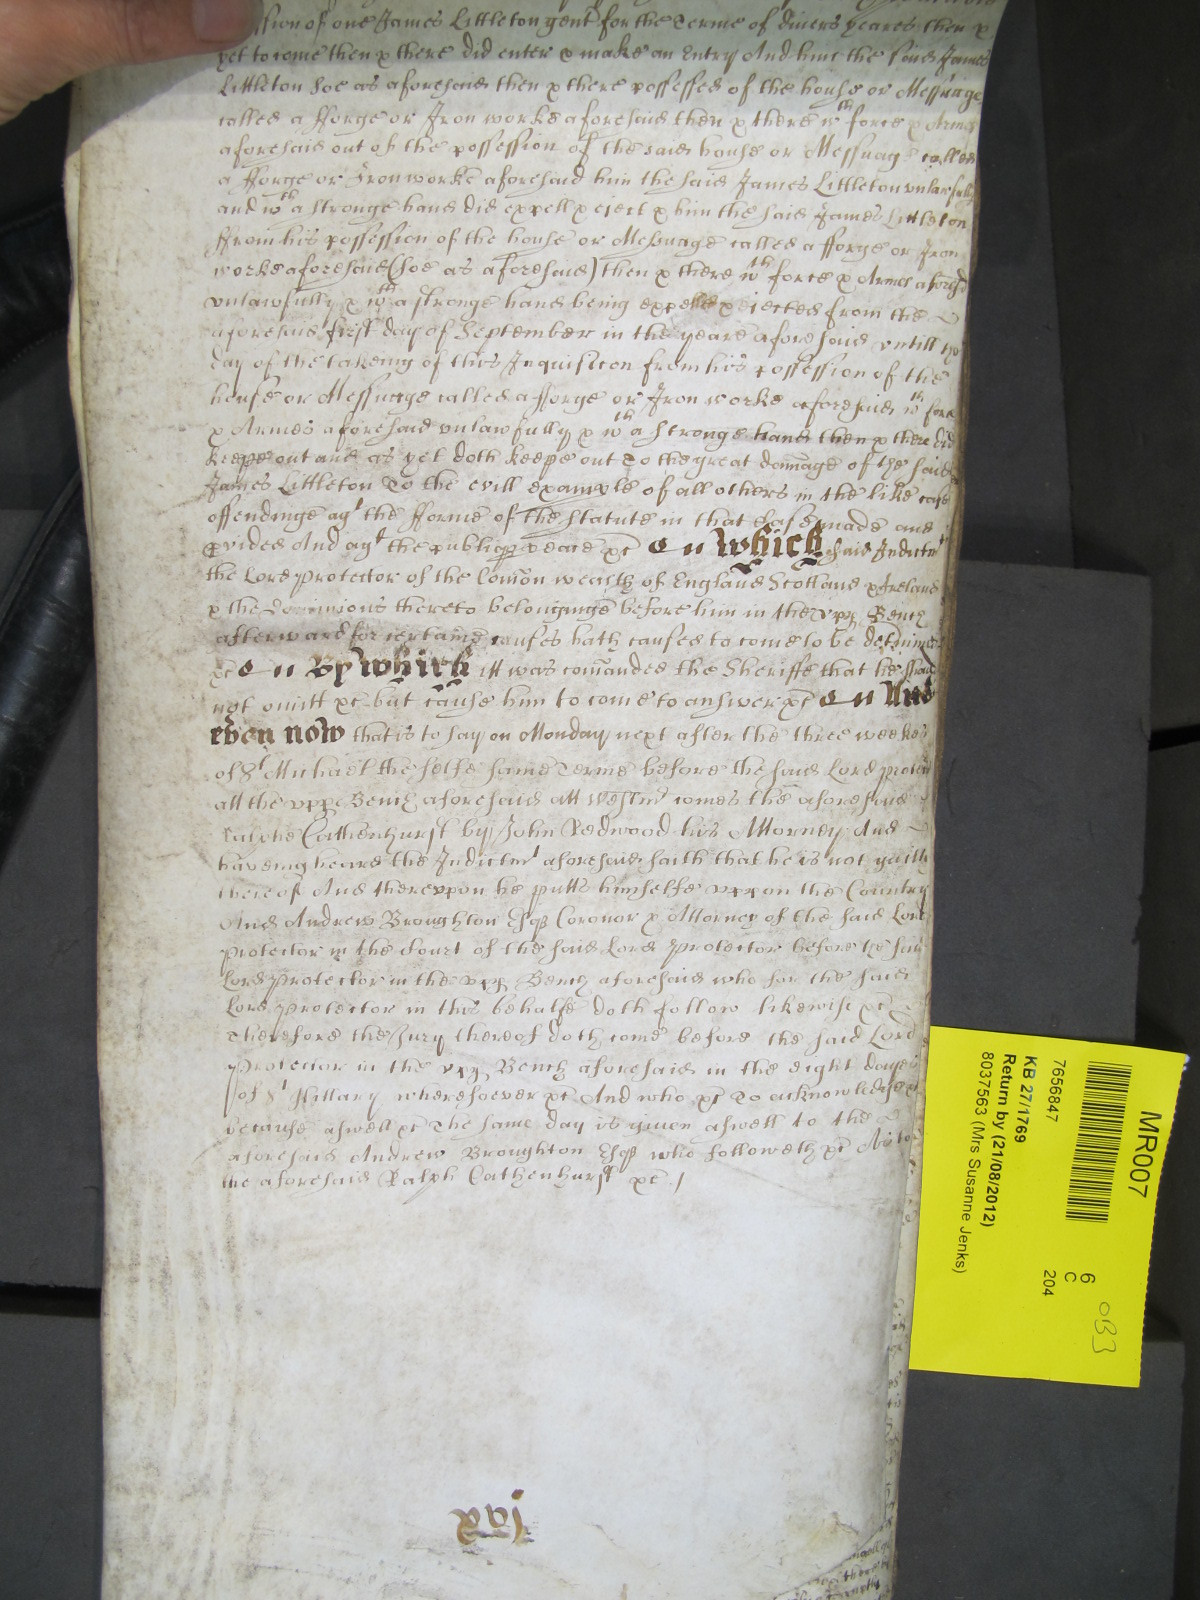 sion of one James Littleton gent for the Terme of divers yeares then &
yet to come then & there did enter & make an Entry And him the said James
Littleton soe as aforesaid then & there possessed of the house or Messuage
called a fforge or Iron works aforesaid then & there wth force & Armes
aforesaid out of the possession of the said house or Messuage called
a fforge or Iron worke aforesaid him the said James Littleton unlawfully
and wth a stronge hand did expell & eject & him the said James Littleton
ffrom his possession of the house or Messuage called a fforge or Iron
works aforesaid (soe as aforesaid) then & there wth force & Armes aforesd
unlawfully & wth a stronge hand being expelled & ejected from the
aforesaid first day of September in the yeare aforesaid untill the
day of the takeing of this Inquisicon from his possession of the
house or Messuage called a fforge or Iron works aforesaid wth force
& Armes aforesaid unlawfully & wth a stronge hand then & there did
keepe out and as yet doth keepe out To the great damage of the said
James Littleton To the evill example of all others in the like case
offendinge agt the fforme of the statute in that case made and
pvided And agt the publiq peace &c On which said Indictmt
the Lord Protector of the Comon wealth of England Scotland & Ireland
& the Dominions thereto belonginge before him in the upp Bench
afterward for certaine causes hath caused to come to be determined
&c On By which itt was comanded the Sheriffe that he should
not omitt &c but cause him to come to answer &c On And
even now that is to say on Monday next after the three weekes
of St Michael the selfe same Terme before the said Lord protector
att the upp Bench aforesaid att Westmr comes the aforesaid
Ralphe Cathenhurst by John Redwood his Attorney And
haveing heard the Indictmt aforesaid saith that he is not guilty
thereof And thereupon he putts himselfe uppon the Country
And Andrew Broughton Esqr Coronor & Attorney of the said Lord
protector in the Court of the said Lord Protector before the said
Lord Protector in the upp Bench aforesaid who for the said
Lord Protector in this behalfe doth follow likewise &c
Therefore the Jury thereof doth come before the said Lord
Protector in the upp Bench aforesaid in the eight dayes
of St Hillary wheresoever &c And who &c To acknowledge &c
because aswell &c The same day is given aswell to the
aforesaid Andrew Broughton Esqr who followeth &c As to
the aforesaid Ralph Cathenhurst &c
MR007
7656847
KB 27/1769
Return by (21/08/2012)
8037563 (Mrs Susanne Jenks)
6
C
204
083